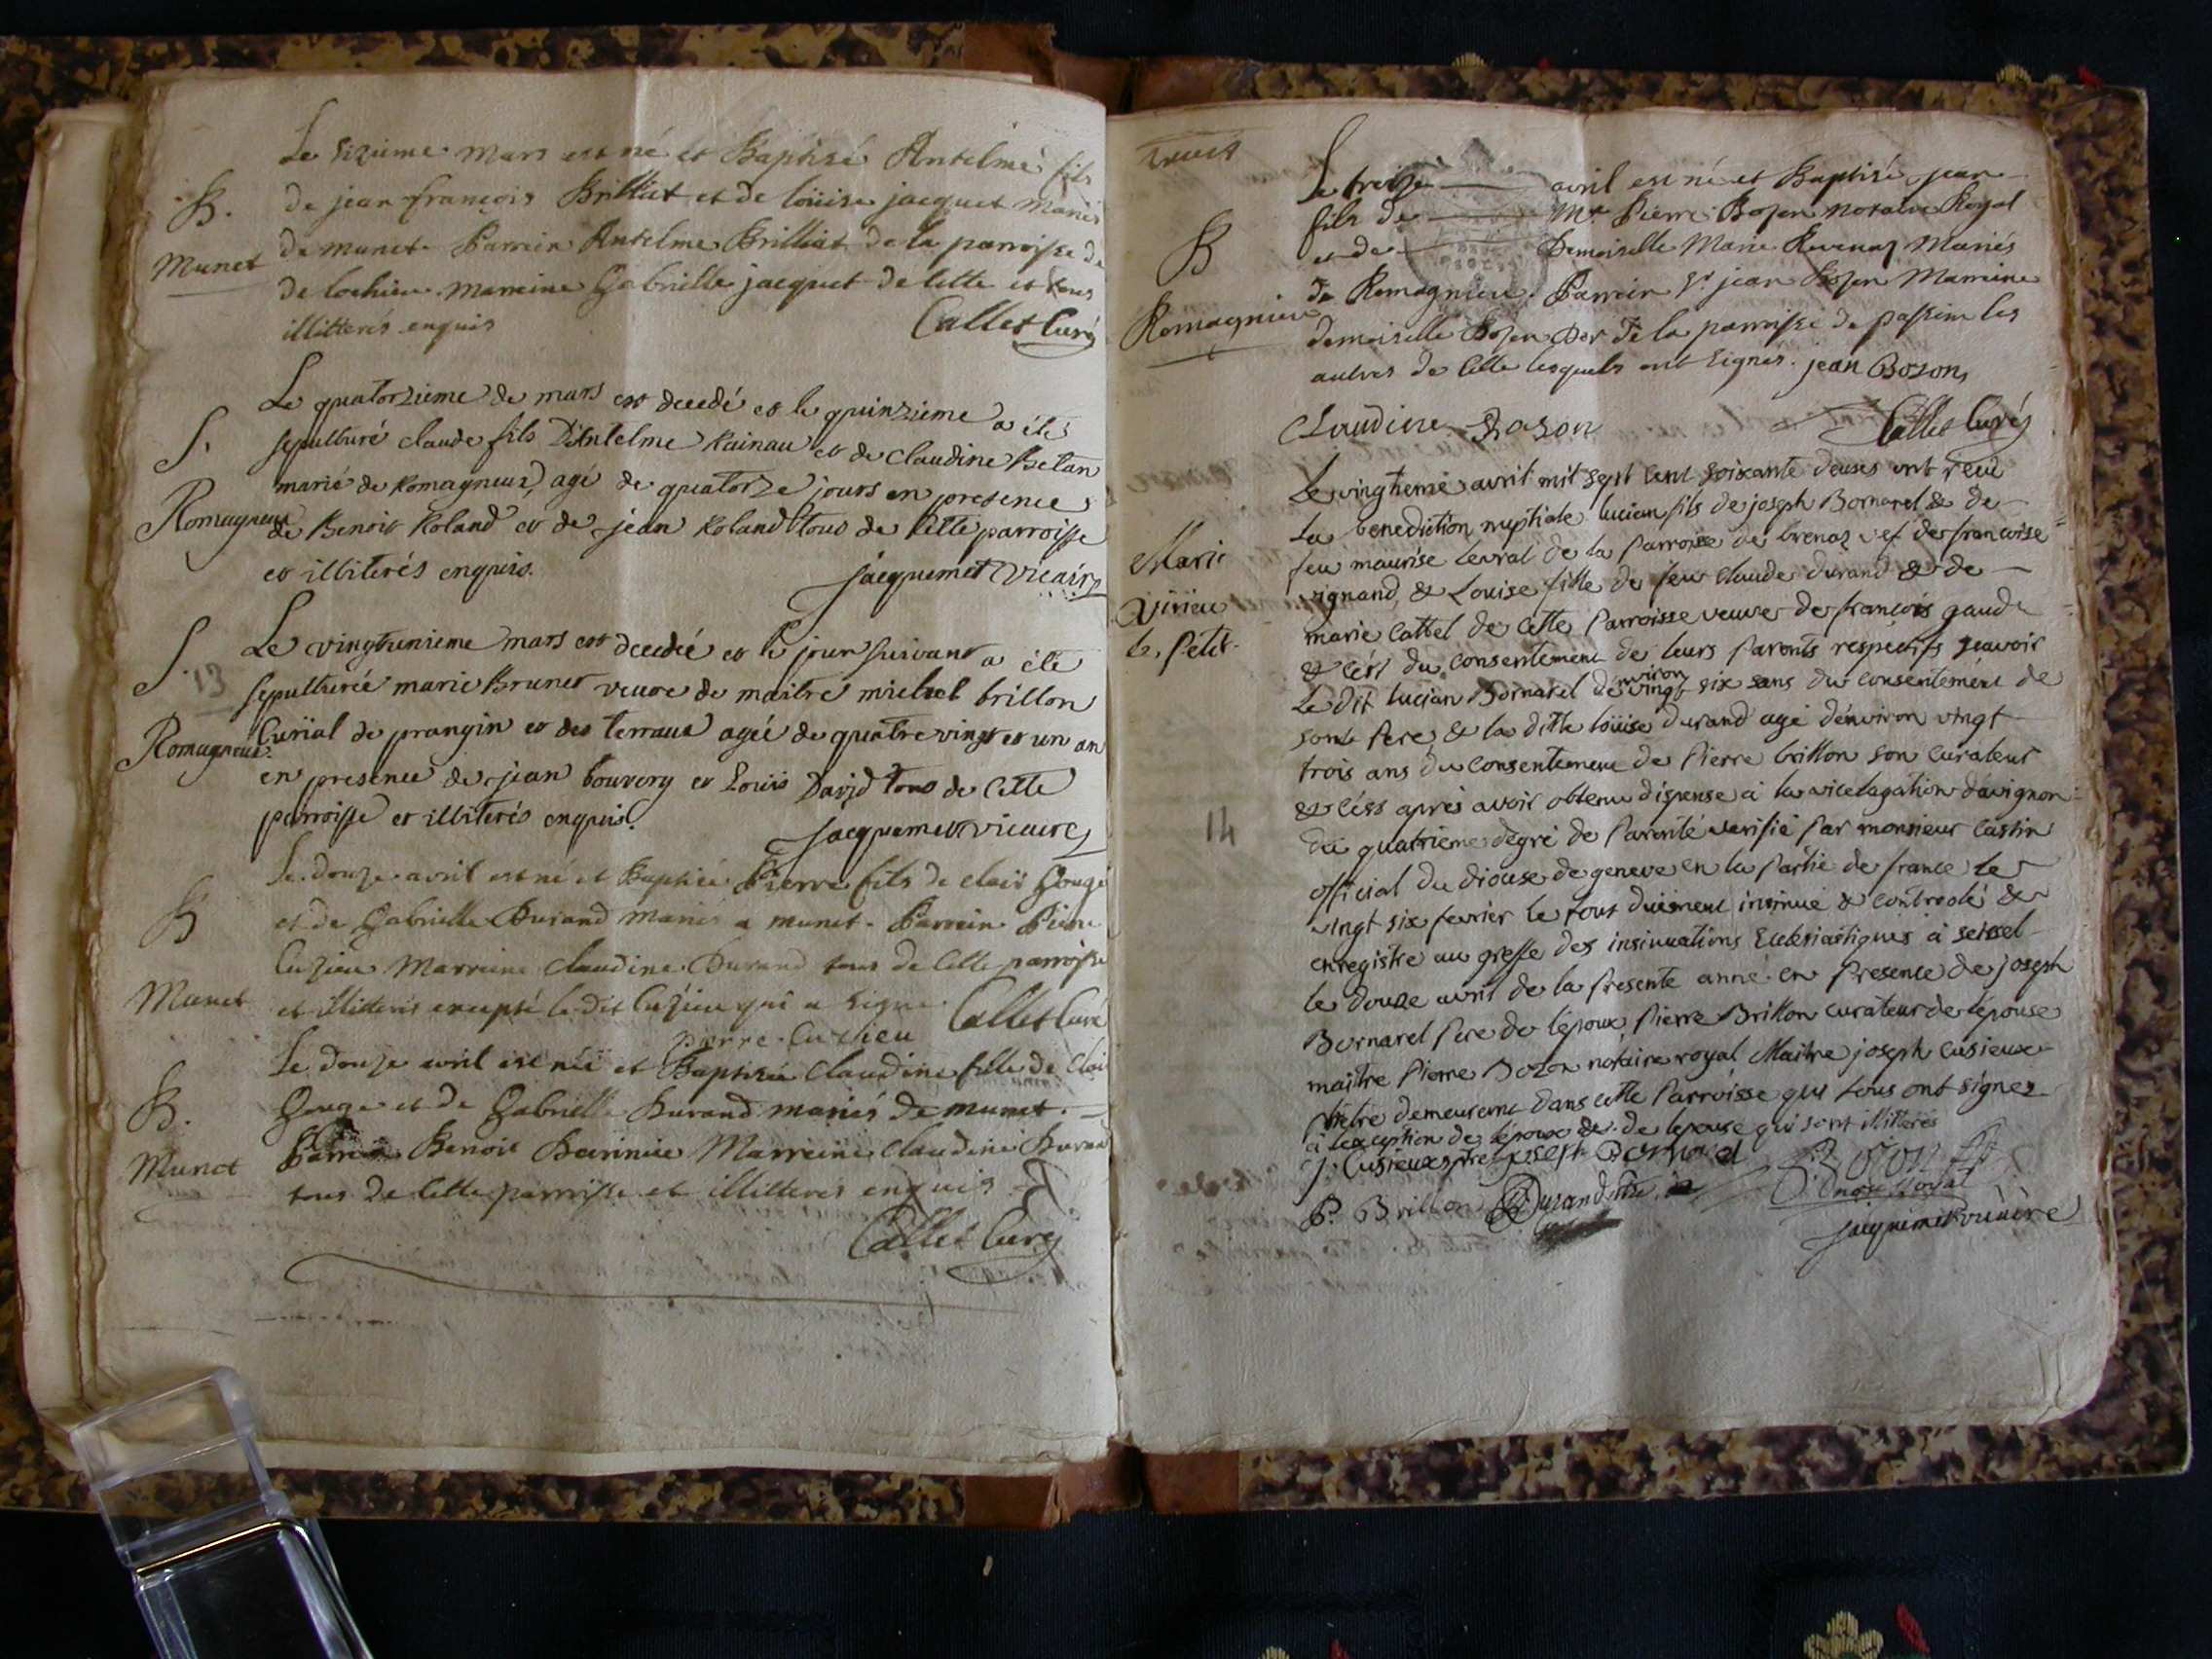 Le sixieme mars est né et Baptisé Antelme fils
B. de jean françois Brilliat et de loüise jacquet Mariés
Munet de munet. Parrein Antelme Brilliat de la parroisse de
de lochieu. marreine Gabrielle jacquet de cette et tous
illitterés enquis Callet Curé
Le quatorzieme de mars est decedé et le quinzieme a été
S. sepulturé claude fils D'Antelme Rainau et de claudine Betan
marié de Romagneux, agé de quatorze jours en presence
Romagneux de Benoit Roland et de jean Roland tous de cette parroisse
et illiterés enquis. jacquemet Vicaire
S. Le vingtunieme mars est decedée et le jour suivant a été
13 sepulturée marie Brunet veuve de maitre michel brillon
Romagneux. Curial de prangin et des terraux agée de quatre vingt et un an
en presence de jean bouvery et Louis David tous de cette
parroisse et illiterés enquis. jacquemet vicaire
Le douze avril est né et Baptisé Pierre fils de claii Gouge
B et de Gabrielle Durand mariés a munet. Parrein Pierre
Cuzieu Marreine claudine Durand tous de cette parroisse
Munet et illitteris excepté le dit Cuzieu qui a signé. Callet Curé
pierre Cusieu
Le douze avril est née et Baptisée claudine fille de Claii
B. Gouge et de Gabrielle Durand mariés de munet.
Munet Parrein Benoit Marreine Claudine Durand
tous de cette parroisse et illitteres enquis
Callet Curé
Le treize avril est né et Baptisé jean
fils de Mre Pierre Bozon Notaire Royal
B et de Demoiselle Marie Mariés
Romagnieu de Romagnieu. Parrein Sr jean Bozon Marreine
demoiselle Bozon de la parroisse de passin les
autres de Cette lesquels ont signés. jean Bozon
Claudine Bozon Callet Curé
Le vingtieme avril mil sept cent soixante deuses ont reçû
la benediction nuptiale lucian fils de joseph Bornarel & de
Marie feu maurise levrat de la Parroisse de brenaz vef de francoise
virieu vignand, & Louise fille de feu claude durand & de
le petit. marie Cattel de cette Parroisse veuve de francois gaude
& c'est du consentement de leurs Parents respectifs sçavoir
Le dit lucian Bornarel denviron vingt six ans du consentement de
sont Pere & la ditte loüise durand agé d'environ vingt
trois ans du consentement de Pierre brillon son curateur
& c'ess aprés avoir obtenu dispense à la vicelagation d'avignon
14 du quatrieme degré de Parenté verifié Par monsieur Castin
official du diocese de geneve en la Partie de france le
vingt six fevrier le tout duëment insinué & controolé &
enregistre au greffe des insinuations Ecclesiastiques à seissel
le douze avril de la presente anné en Presence de joseph
Bornarel Pere de l'époux Pierre Brillon curateur de l'épouse
maitre Pierre Bozon notaire royal Maitre joseph Cusieux
Prêtre demeurant dans cette Parroisse qui tous ont signez
à l'exception de l'époux & de l'épouse qui sont illitteres
j. Cusieux ptre joseph Bornarel Bozon
P. Brillon Durand nore Royal
jacquemet vicaire